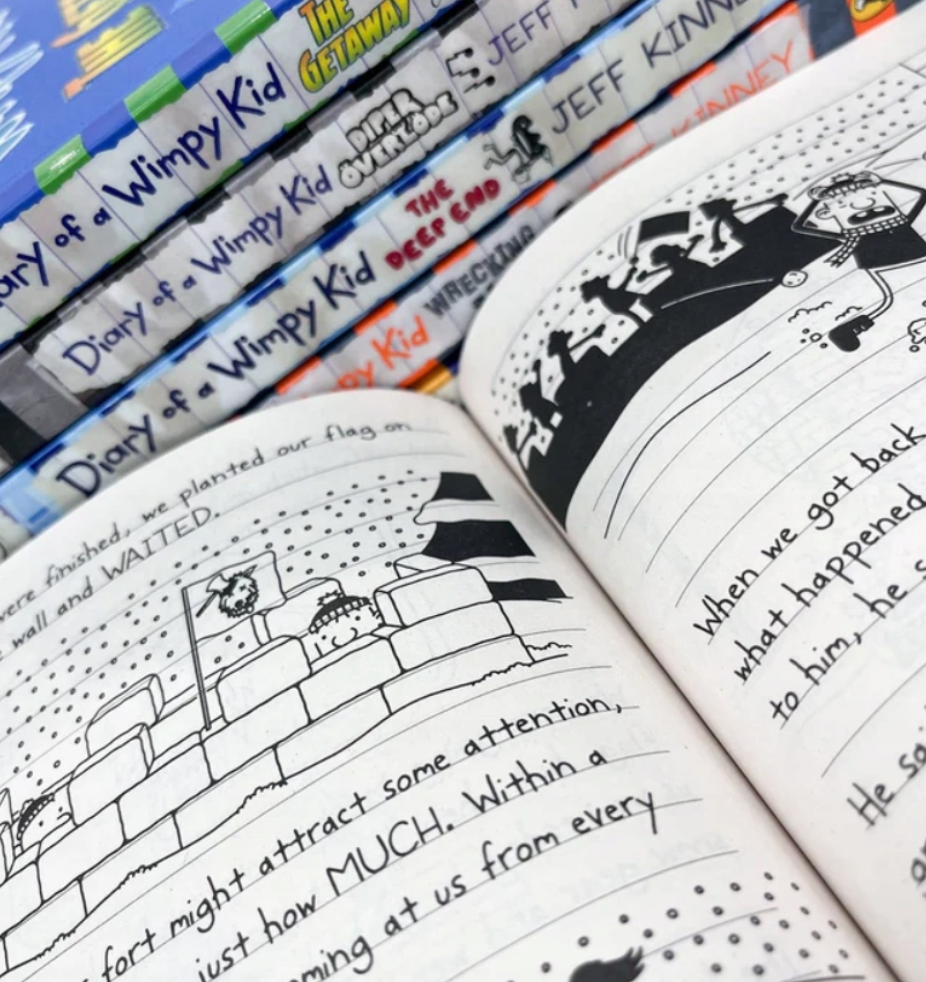 THE
GETAWAY
of a Wimpy Kid
JEFF
Diary of a Wimpy Kid
DIPER
ÖVERLÖDE
JEFF
Diary of a Wimpy Kid
THE
DEEP END
JEFF KINNEY
Kid
WRECKING
KINNEY
were finished, we planted our flag on
wall and WAITED.
fort might attract some attention,
just how MUCH. Within a
at us from every
When we got back
what happened
to him, he
He